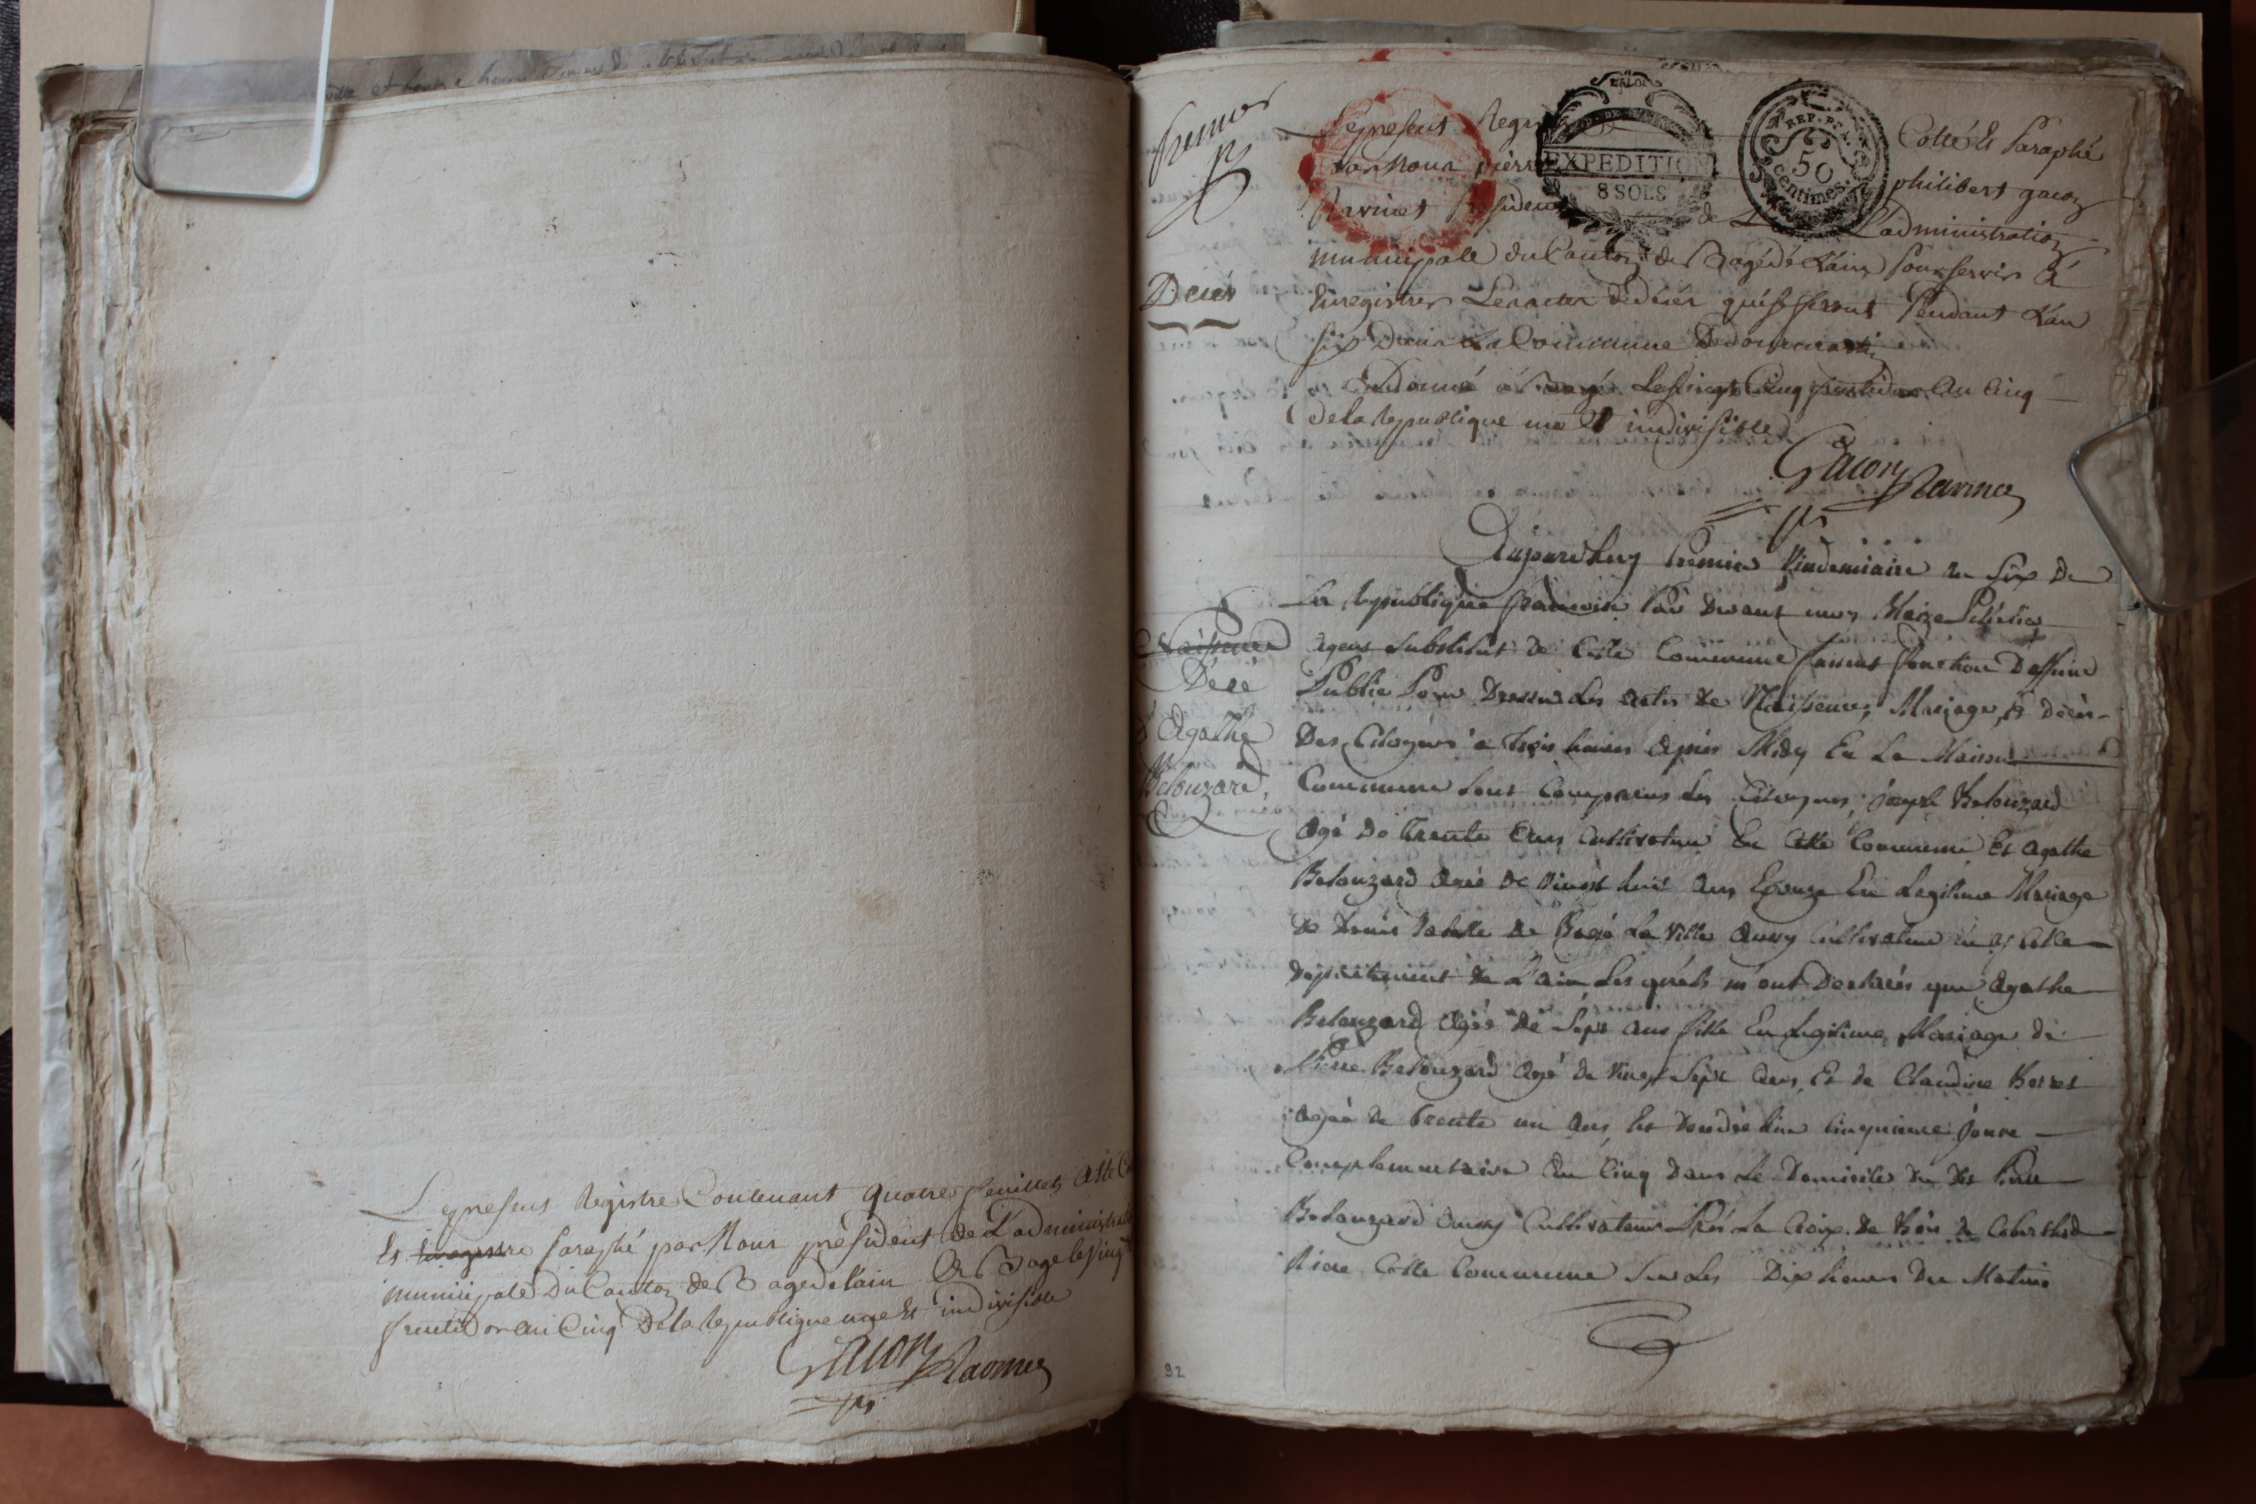 Le present Registre Contenant quatre feuillets a été
Et Enregistre Paraphé par Nous président de L'administration
municipale Du Canton de Bagé de L'ain A Bagé le vingt
fructidor an Cinq De la République une Et indivisible
Gacon Ravinet
premier
Le present Registre Cotté Et Paraphé
par Nous pierre philibert gacon
Ravinet Président de L'administration
municipale du Canton de Bagé de L'ain pour servir à
Enregistrer Les actes de décès qui se feront Pendant L'an
six Dans la Commune de dommartin
Donné à Bagé Le vingt Cinq fructidor An Cinq
de la Republique une Et indivisible
Gacon Ravinet
Décès
EXPEDITION
8 SOLS
REP. FRA.
50
centimes
Aujourdhuy Premier Vindemiaire an six De
La Republique francoise Par devant moy
agent substitut de Cette Commune faisant fonction Dofficier
Public Pour Dresser Les actes de Naissences, Mariage, & Décès
Des Citoyens a trois heures après Midy En La Maison
Commune sont Comparus Les Citoyens, joseph Belouzard
agé de trente ans Cultivateur En Cette Commune Et agathe
Belouzard agée de vingt huit ans Epouse En Legitime Mariage
de Denis de Bagé La Ville aussy Cultivateur
département de L'ain Les quéls m'ont Déclarés que agathe
Belouzard agée de sept ans fille En Legitime Mariage de
Pierre Belouzard agé de vingt sept ans, Et de Claudine
agée de trente un ans, Est Décédée hier Cinquieme joure
Complementaire an Cinq dans Le Domicile du dit Pierre
Belouzard aussy Cultivateur Près La Croix de Bois de
Cette Commune sur Les Dix heures Du Matin
Naissence
Décé
d'Agathe
Belouzard,
92